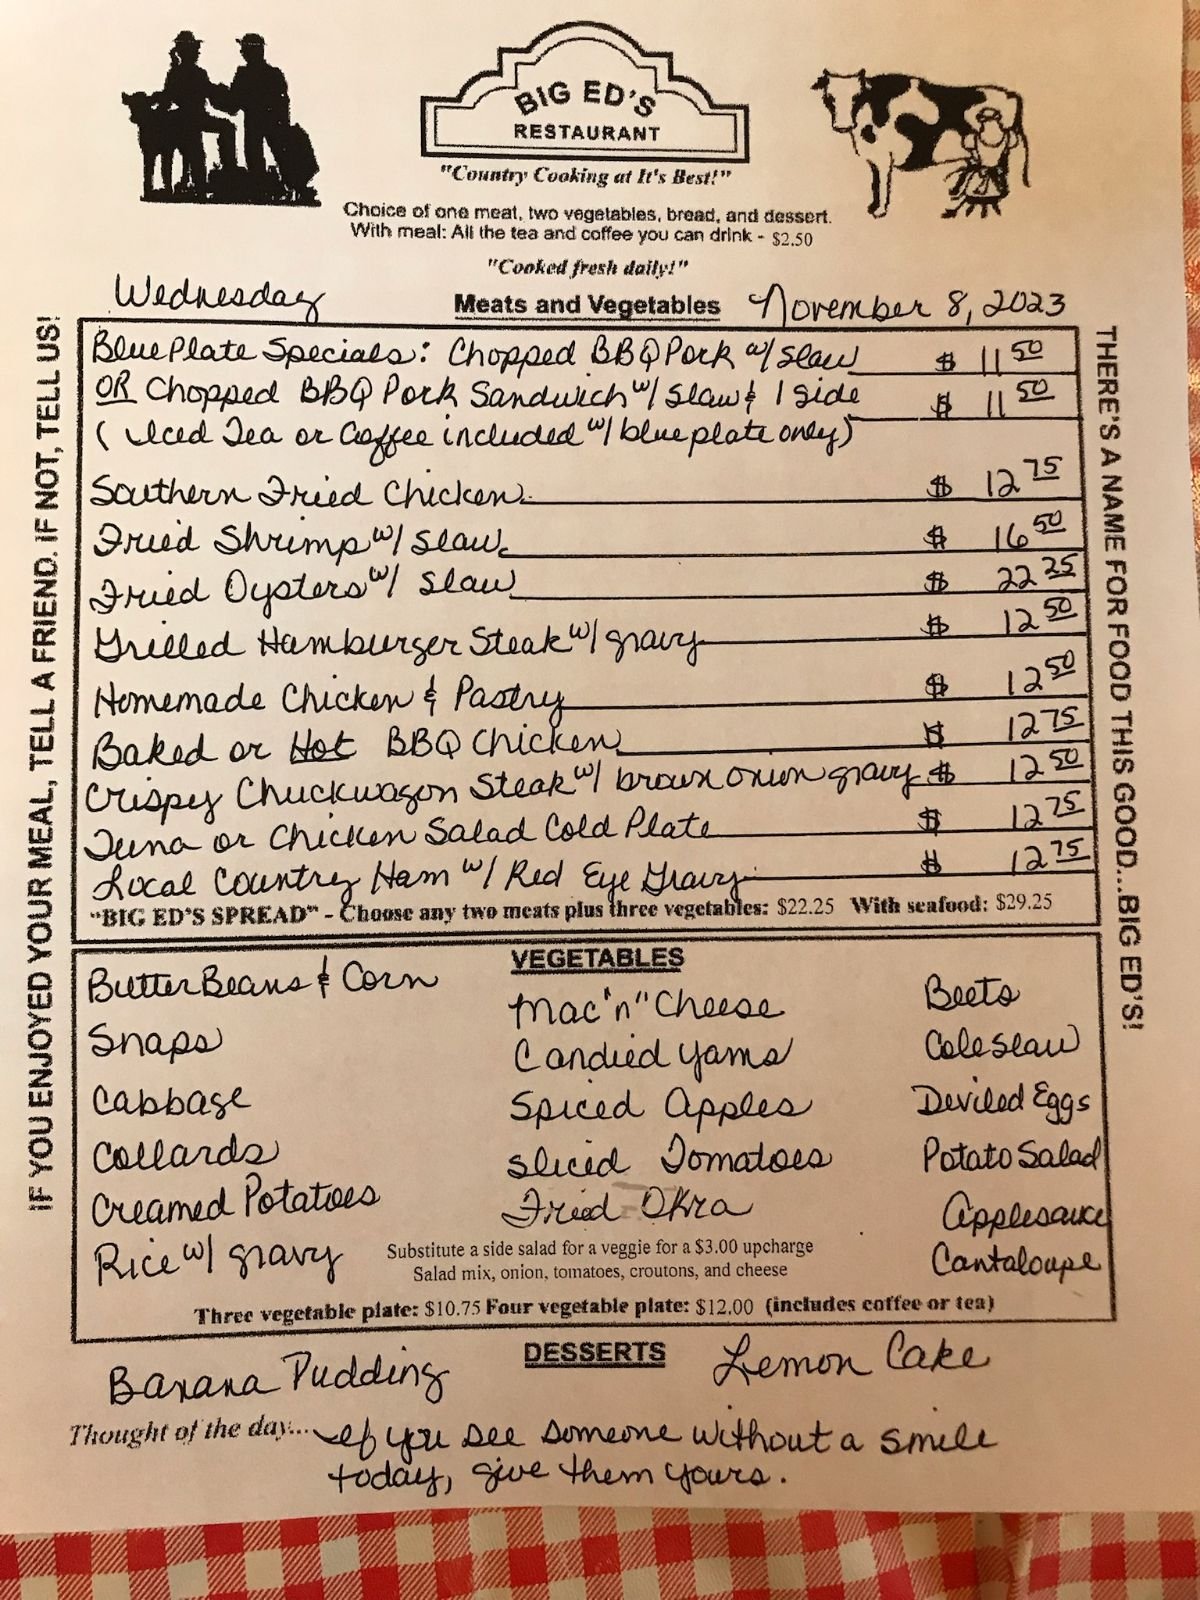 BIG ED'S
RESTAURANT
"Country Cooking at It's Best!"
Choice of one meat, two vegetables, bread, and dessert.
With meal: All the tea and coffee you can drink - $2.50
"Cooked fresh daily!"
Wednesday Meats and Vegetables November 8, 2023
IF YOU ENJOYED YOUR MEAL, TELL A FRIEND. IF NOT, TELL US!
Blue Plate Specials: Chopped BBQ Pork w/ slaw $ 11 50
OR Chopped BBQ Pork Sandwich w/ slaw & 1 side $ 11 50
( Iced Tea or Coffee included w/ blue plate only)
Southern Fried Chicken $ 12 75
Fried Shrimp w/ slaw $ 16 50
Fried Oysters w/ slaw $ 22 25
Grilled Hamburger Steak w/ gravy $ 12 50
Homemade Chicken & Pastry $ 12 50
Baked or Hot BBQ Chicken $ 12 75
Crispy Chuckwagon Steak w/ brown onion gravy $ 12 50
Tuna or Chicken Salad Cold Plate $ 12 75
Local Country Ham w/ Red Eye Gravy $ 12 75
"BIG ED'S SPREAD" - Choose any two meats plus three vegetables: $22.25 With seafood: $29.25
THERE'S A NAME FOR FOOD THIS GOOD...BIG ED'S!
VEGETABLES
Butter Beans & Corn
Snaps
Cabbage
Collards
Creamed Potatoes
Rice w/ gravy
Mac "n" Cheese
Candied Yams
Spiced Apples
Sliced Tomatoes
Fried Okra
Beets
Cole Slaw
Deviled Eggs
Potato Salad
Applesauce
Cantaloupe
Substitute a side salad for a veggie for a $3.00 upcharge
Salad mix, onion, tomatoes, croutons, and cheese
Three vegetable plate: $10.75 Four vegetable plate: $12.00 (includes coffee or tea)
DESSERTS
Banana Pudding Lemon Cake
Thought of the day... If you see someone without a smile
today, give them yours.